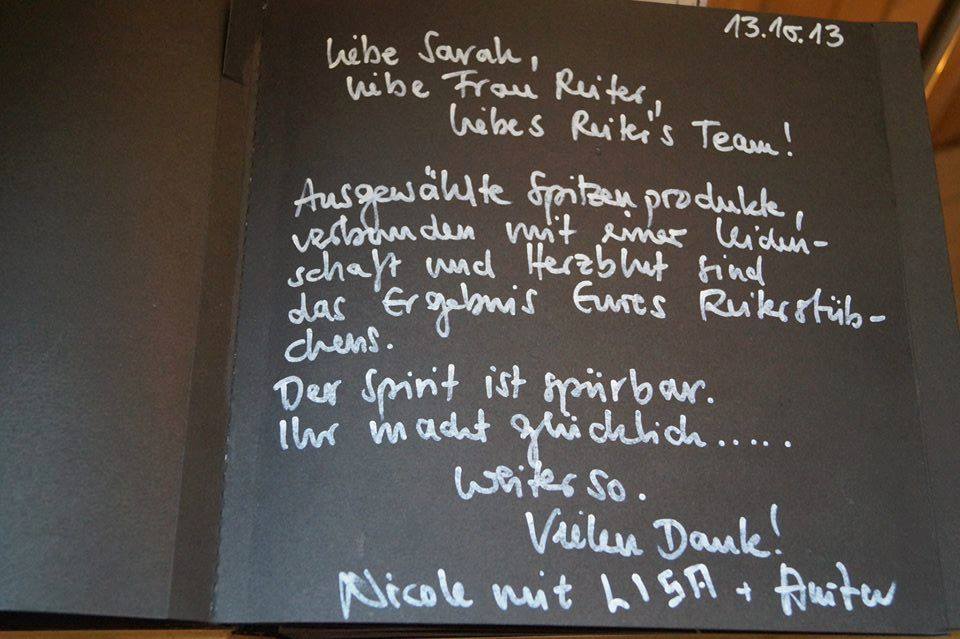 13.10.13
Liebe Sarah,
Liebe Frau Reiter,
Liebes Reiter's Team!
Ausgewählte Spitzenprodukte,
verbunden mit einer Leiden-
schaft und Herzblut sind
das Ergebnis Eures Reiterstüb-
chens.
Der Spirit ist spürbar.
Ihr macht glücklich.....
Weiter so.
Vielen Dank!
Nicole mit LISA +